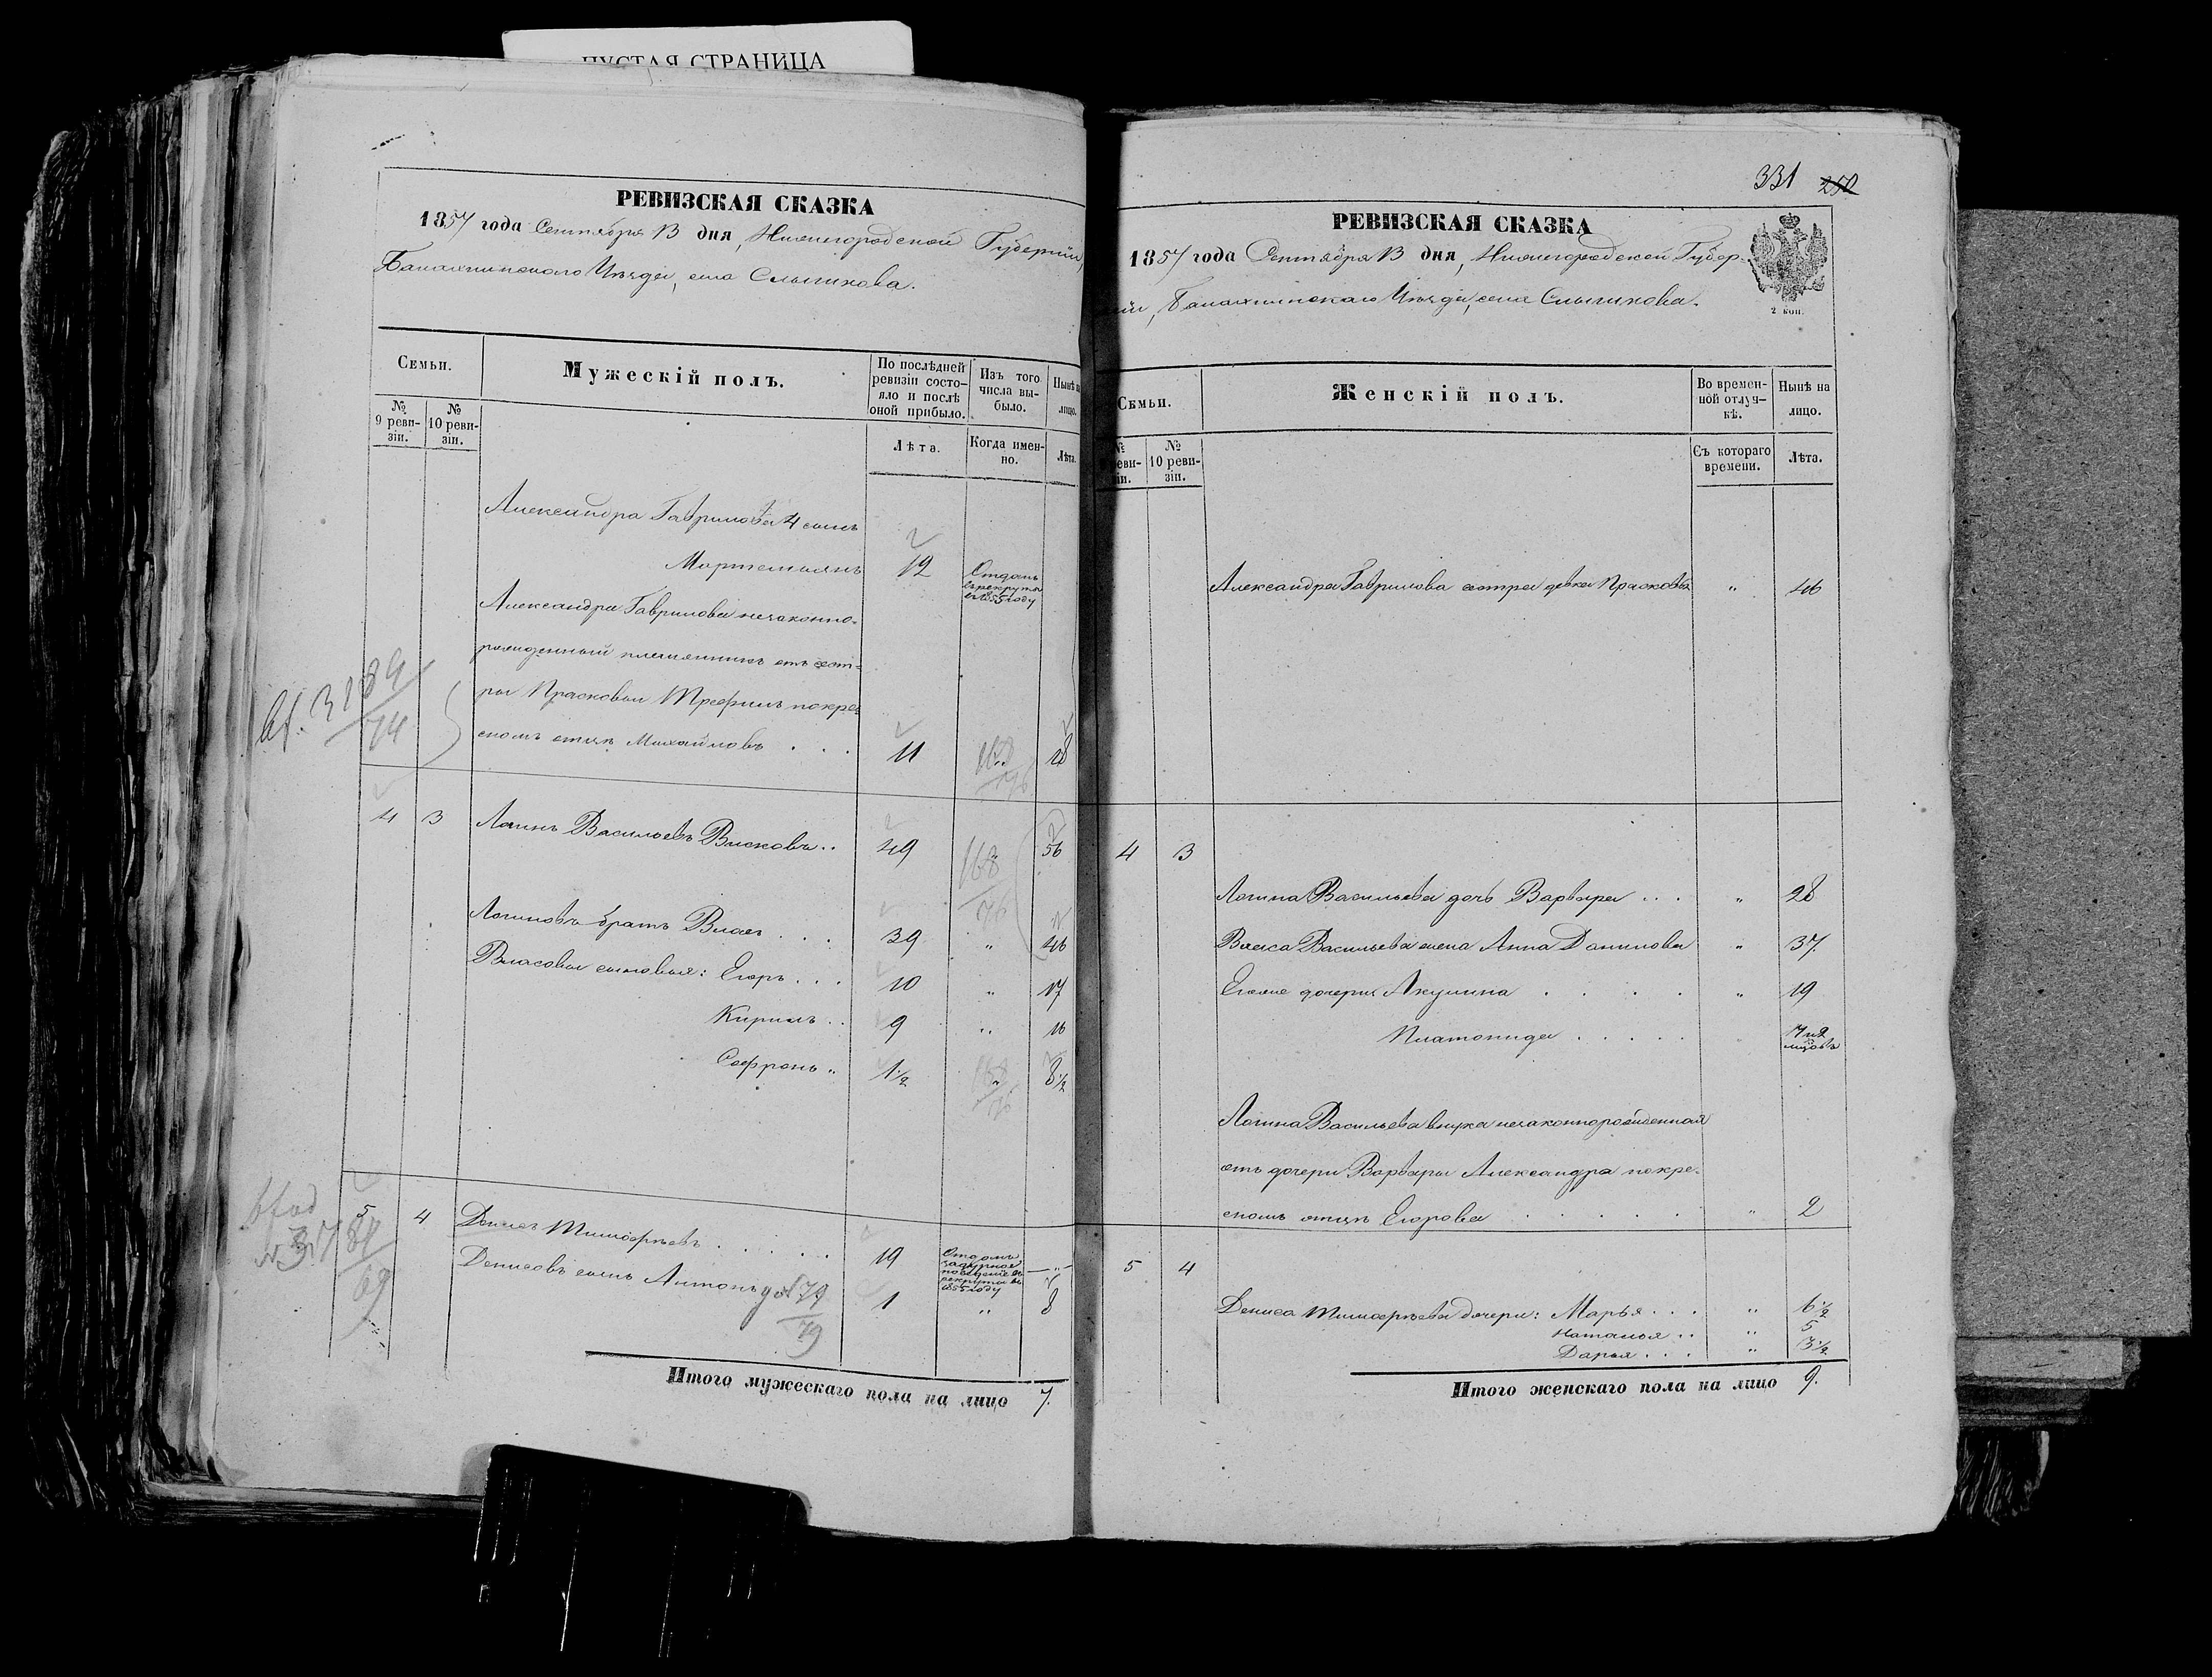 ПУСТАЯ СТРАНИЦА
РЕВИЗСКАЯ СКАЗКА
1857 года Сентября 13 дня, Нижегородской Губернiи,
Балахнинскаго Уѣзда, села Слышкова.
Семьи.
Мужескiй полъ.
По послѣдней ревизiи состояло и послѣ оной прибыло.
Изъ того числа выбыло.
Нынѣ на лицо.
№ 9 ревизiи.
№ 10 ревизiи.
Лѣта.
Когда именно.
Лѣта.
Александра Гаврилова 4 сынъ
Мартемьянъ 12 Отданъ въ рекруты въ 1855 году
Александра Гаврилова незаконно-
рожденный племянникъ отъ сест-
ры Прасковьи Трефилъ по кре-
сномъ отцѣ Михайловъ . . . 11 " 18
4 3 Логинъ Васильевъ Висковъ . . 49 " 56
Логиновъ братъ Власъ . . . 39 " 46
Власовы сыновья: Егоръ . . . 10 " 17
Кирилъ . . 9 " 16
Софронъ " 1½ " 8½
5 4 Денисъ Тимофеевъ . . . . . 19 Отданъ за дурное поведенiе въ рекруты въ 1855 году — " —
Денисовъ сынъ Антонъ 1 " 8
Итого мужескаго пола на лицо 7.
331 250
РЕВИЗСКАЯ СКАЗКА
1857 года Сентября 13 дня, Нижегородской Губер-
нiи, Балахнинскаго Уѣзда, села Слышкова.
2 коп.
Семьи.
Женскiй полъ.
Во временной отлучкѣ.
Нынѣ на лицо.
№ 9 ревизiи.
№ 10 ревизiи.
Съ котораго времени.
Лѣта.
Александра Гаврилова сестра девка Прасковья " 46
4 3
Логина Васильева дочь Варвара . . . " 28
Власа Васильева жена Анна Данилова " 37.
Егоже дочери Акулина . . . . " 19
Платонида . . . . . 7 и 2 мцовъ
Логина Васильева внука незаконнорожденная
отъ дочери Варвары Александра по кре-
сномъ отцѣ Егорова . . . . . " 2
5 4
Дениса Тимофеева дочери: Марья . . . " 6½
Наталья . . " 5
Дарья . . . " 3½
Итого женскаго пола на лицо 9.